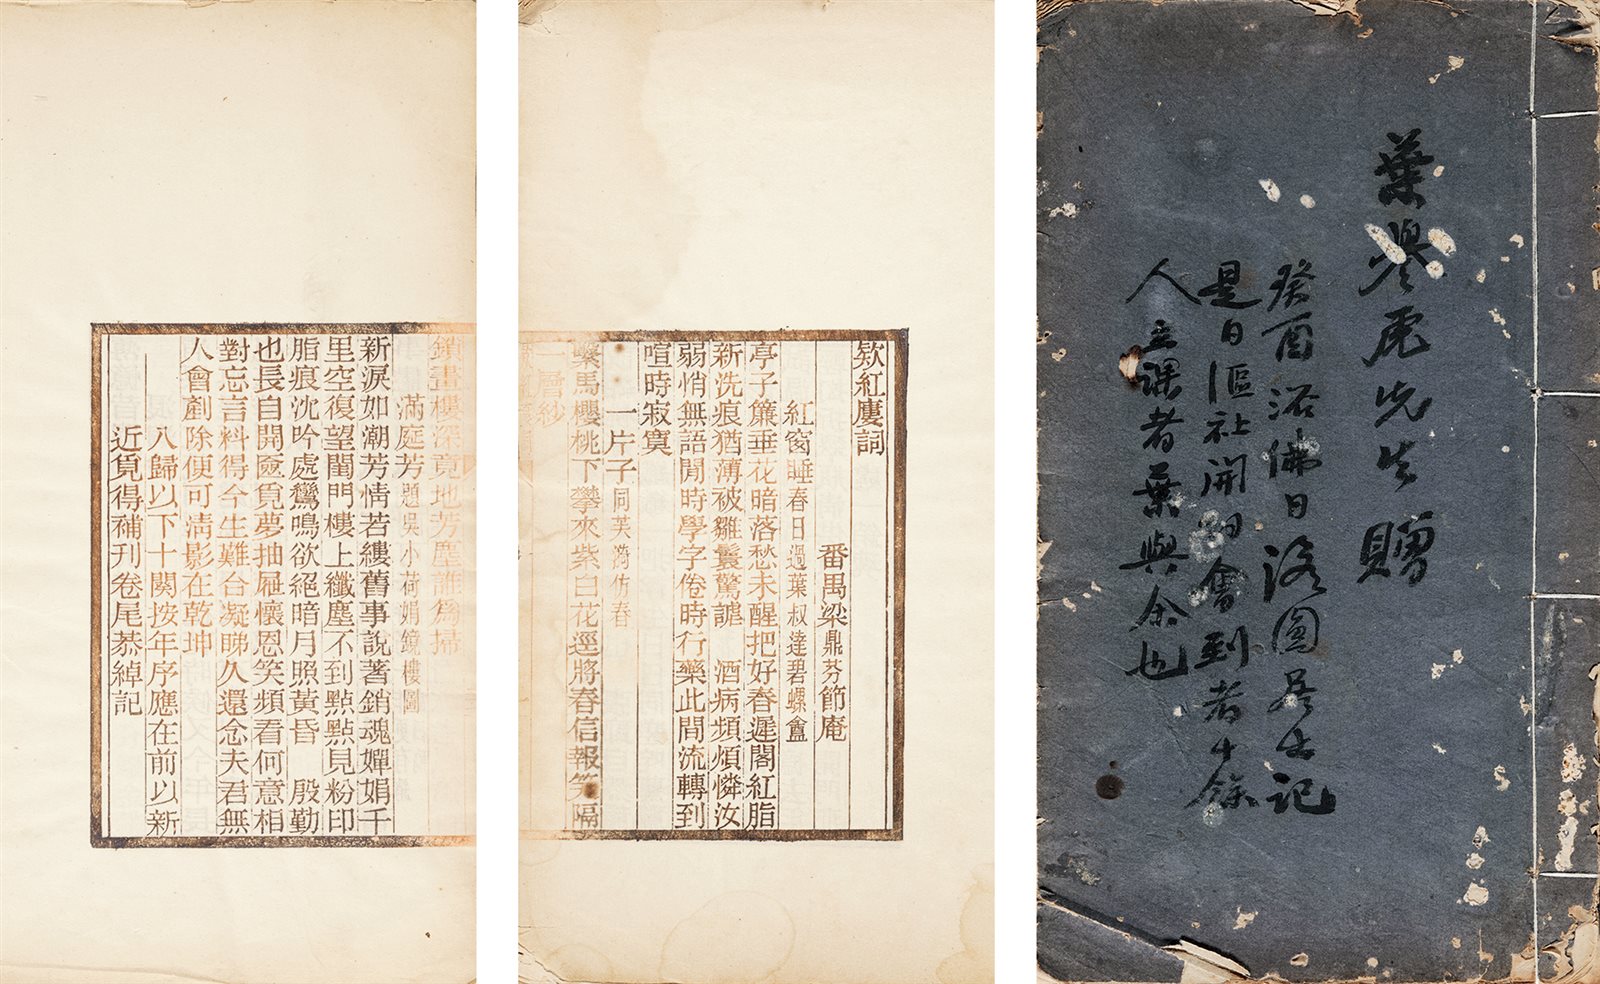 葉譽虎先生贈
癸酉浴佛日潞圓居士記
是日漚社開詞會到者十餘
人主課者葉與余也
欵紅廔詞
番禺梁鼎芬節庵
紅窗睡春日過葉叔達碧螺盦
亭子簾垂花暗落愁未醒把好春遲閣紅脂
新洗痕猶薄被雛鬟驚謔　酒病頻煩憐汝
弱悄無語閒時學字倦時行藥此間流轉到
喧時寂寞
一片子同芙漪仿春
繫馬櫻桃下攀來紫白花逕將春信報笑隔
一層紗
鎖畫樓深竟地芳塵誰為掃
滿庭芳題吳小荷娟鏡樓圖
新淚如潮芳情若縷舊事說著銷魂嬋娟千
里空復望閶門樓上纖塵不到點點見粉印
脂痕沈吟處鶯鳴欲絕暗月照黃昏　殷勤
也長自開匳覓夢抽屜懷恩笑頻看何意相
對忘言料得今生難台凝睇久還念夫君無
人會剷除便可清影在乾坤
八歸以下十闋按年序應在前以新
近覓得補刊卷尾恭綽記